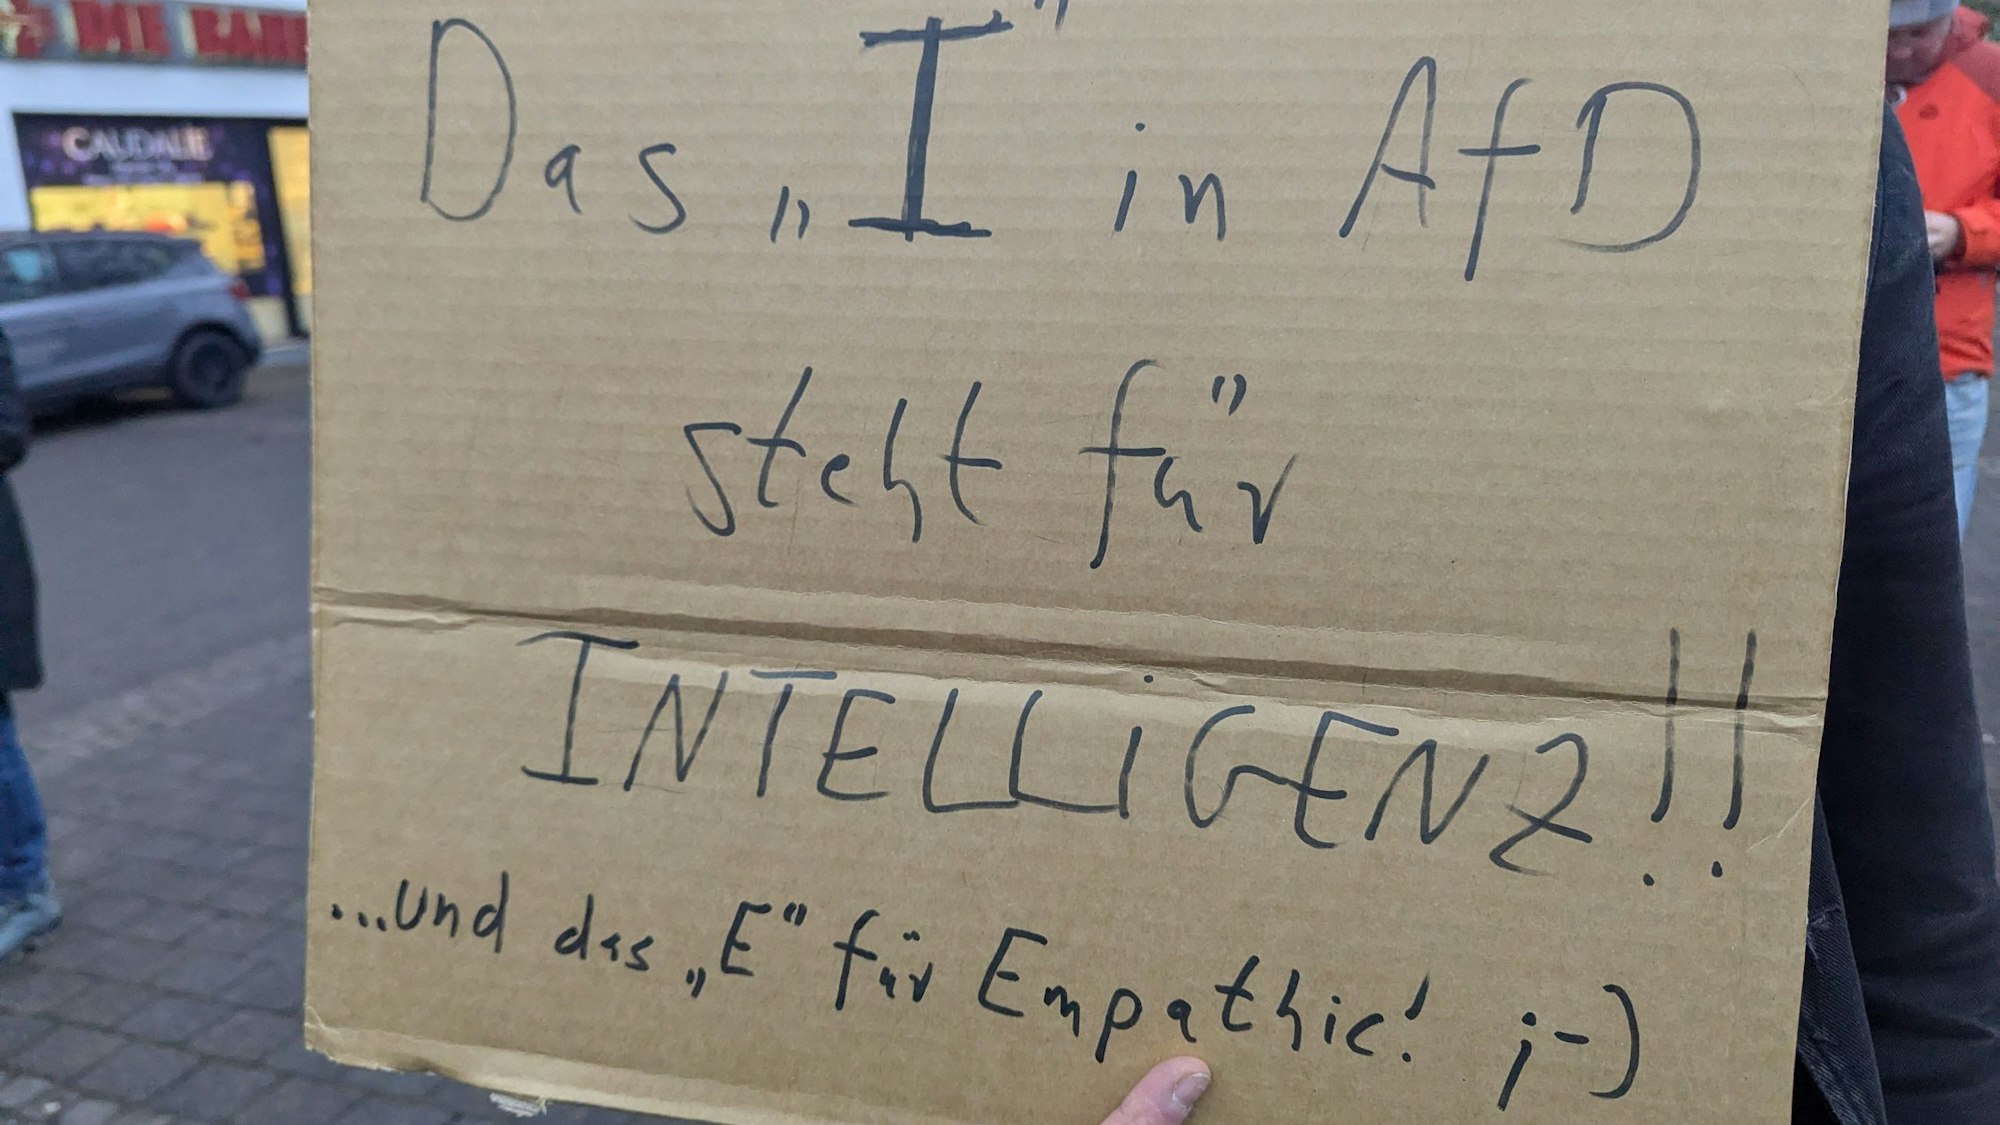 Das „I" in AfD
steht für
INTELLiGENZ!!
...und das „E" für Empathie! ;-)
CAUDALIE